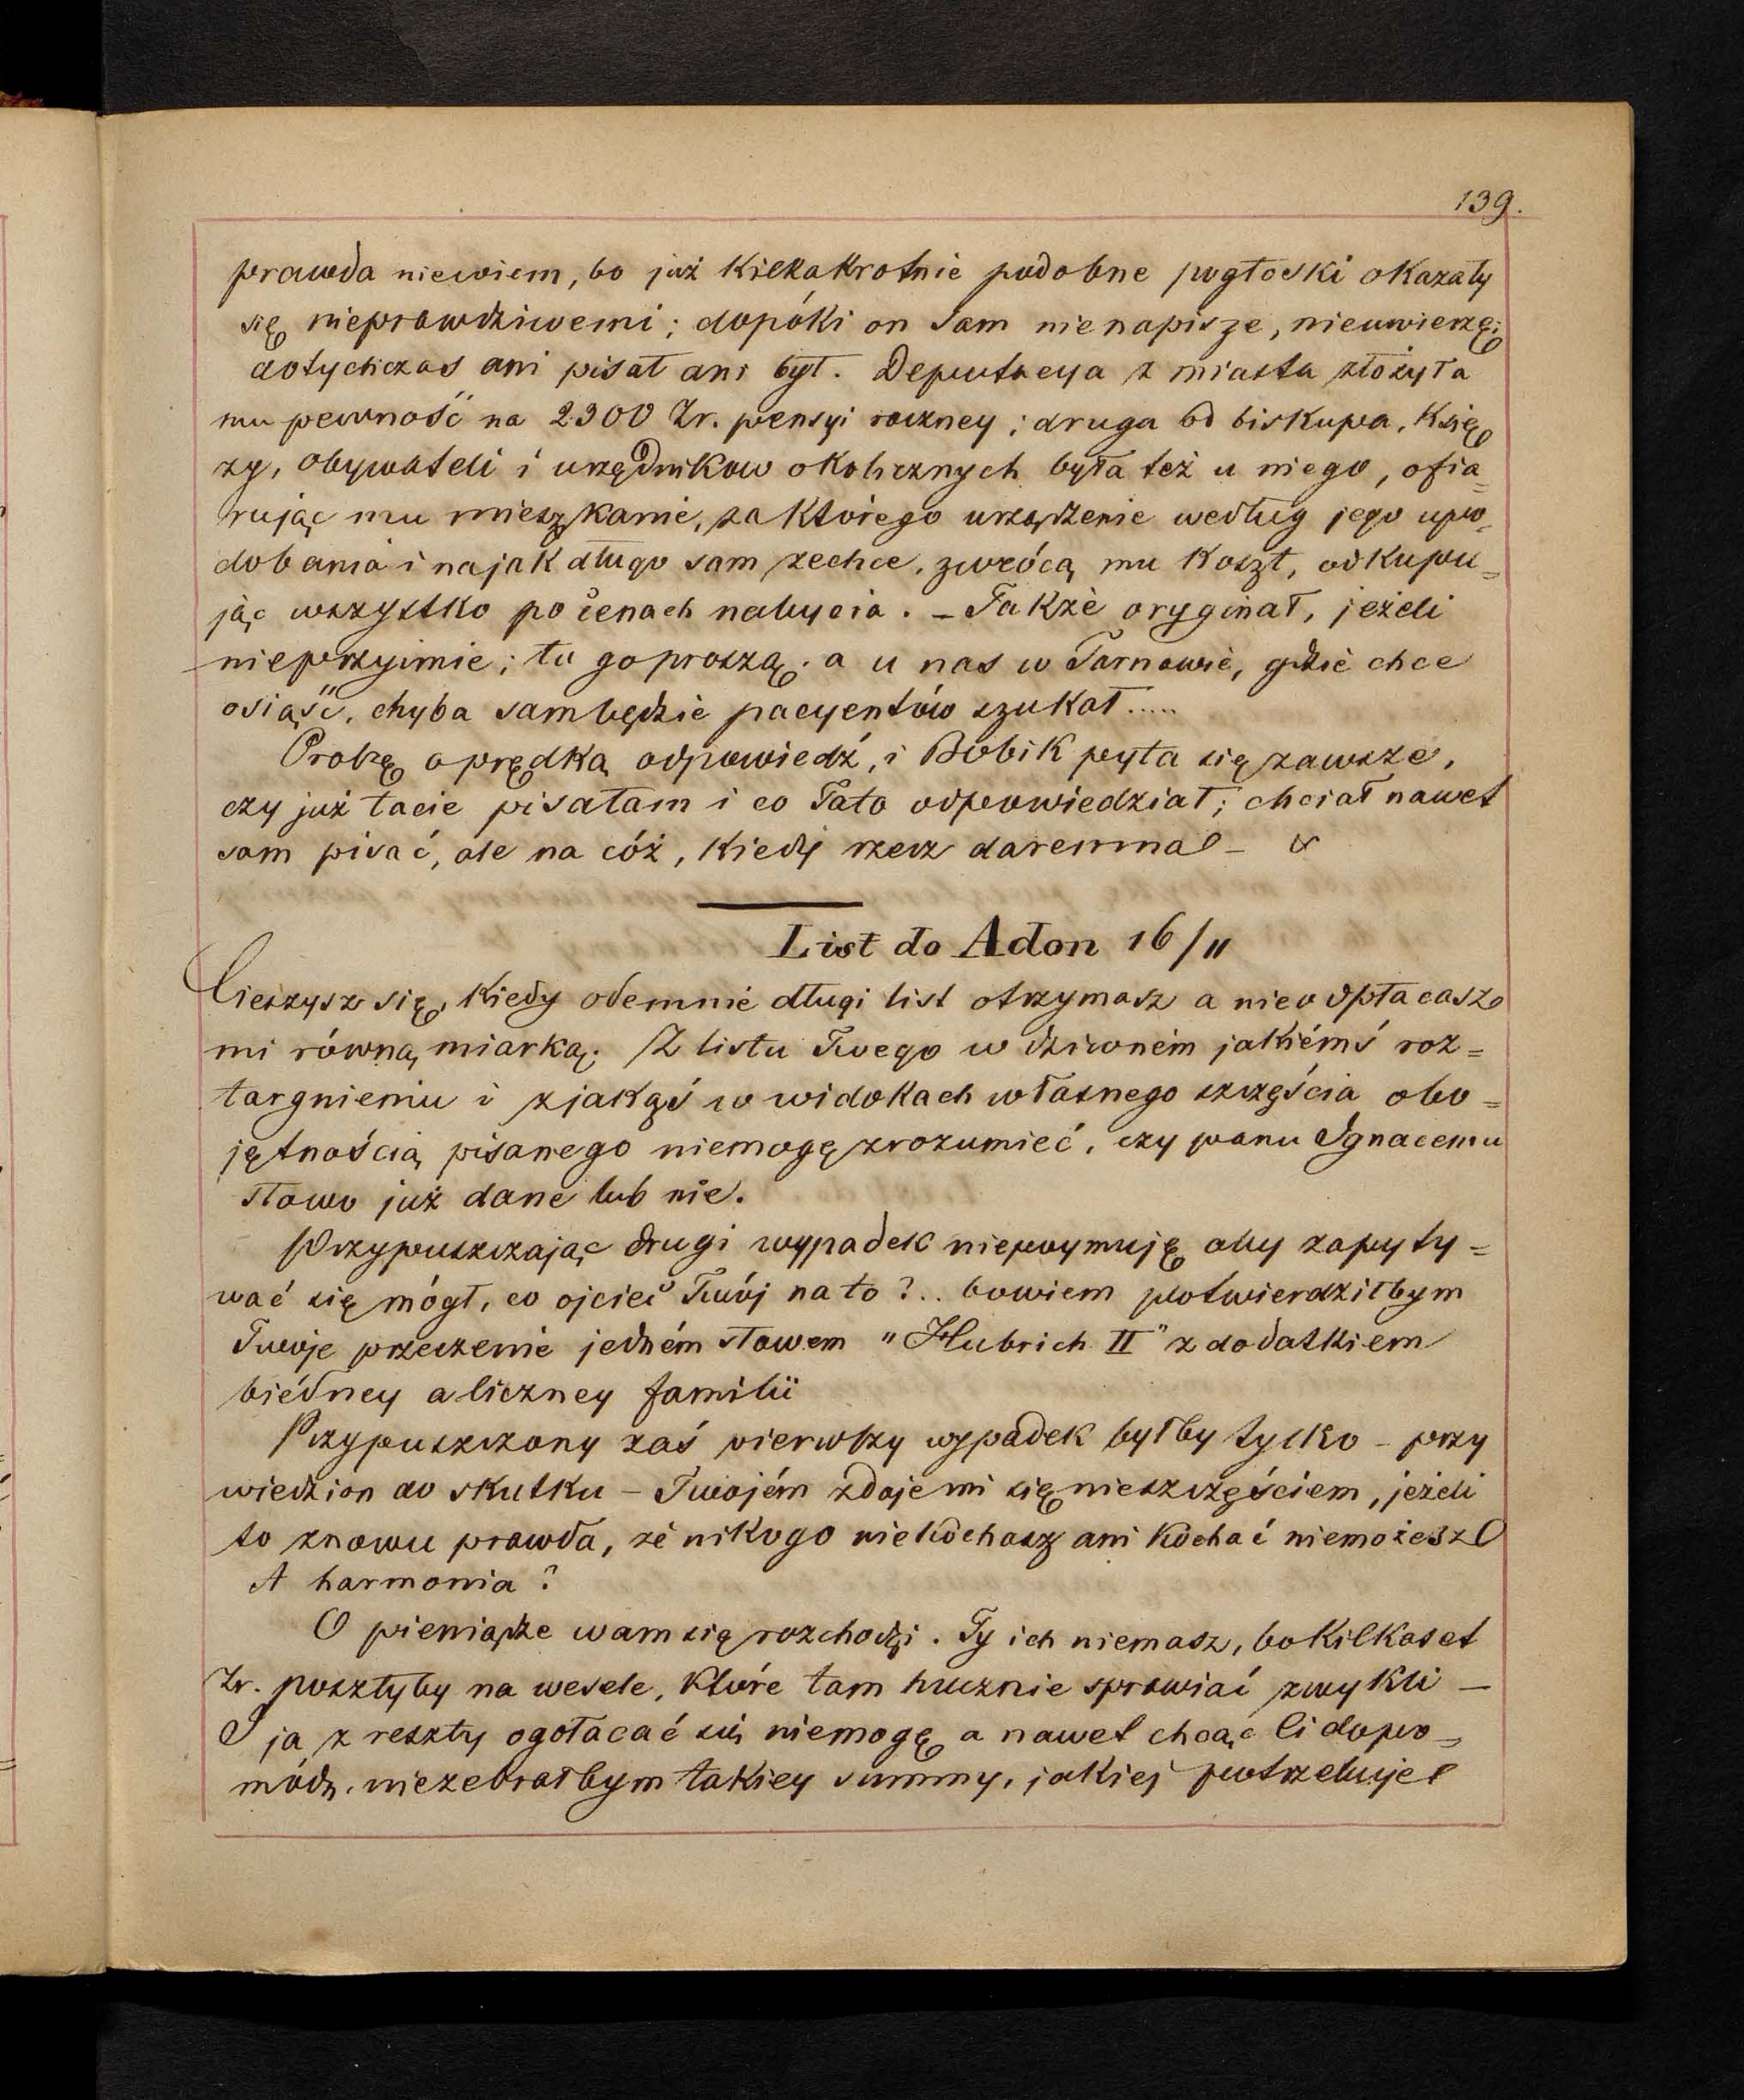 139.
prawda niewiem, bo już kilkakrotnie podobne pogłoski okazały
się nieprawdziwemi; dopóki on sam nienapisze, nieuwierzę;
dotychczas ani pisał ani był. Deputacya z miasta złożyła
mu pewność na 2300 Zr. pensyi roczney; druga od biskupa, księ
ży, obywateli i urzędnikow okolicznych była też u niego, ofia=
rując mu mieszkanie, za którego urządzenie według jego upo=
dobania i na jak długo sam zechce, zwrócą mu koszt, odkupu=
jąc wszystko po cenach nabycia. – Takżè oryginał, jeżeli
nieprzyimie; tu go proszą, a u nas w Tarnowie, gdzie chce
osiąść, chyba sam będzie pacyentów szukał.....
Proszę o prędką odpowiedź, i Bobik pyta się zawsze,
czy już tacie pisałam i co Tato odpowiedział; chciał nawet
sam pisać, ale na cóż, kiedy rzecz daremna –
List do Adon 16/11
Cieszysz się, kiedy odemnie długi list otrzymasz a nieodpłacasz
mi równą miarką. Z listu Twego w dziwném jakiémś roz=
targnieniu i z jakąś w widokach własnego szczęścia obo=
jętnością pisanego niemogę zrozumieć, czy panu Ignacemu
słowo już dane lub nie.
Przypuszczając drugi wypadek niepoymuję aby zapyty=
wać się mógł, co ojciec Twój na to?.. bowiem potwierdziłbym
Twoje przeczenie jedném słowem "Hubrich II" z dodatkiem
biédney a liczney familii
Przypuszczony zaś pierwszy wypadek byłby tylko – przy
wiedzion do skutku – Twojém zdaje mi się nieszczęściem, jeżeli
to znowu prawda, że nikogo niekochasz ani kochać niemożesz
A harmonia?
O pieniądze wam się rozchodzi. Ty ich niemasz, bo kilkaset
Zr. poszłyby na wesele, które tam hucznie sprawiać zwykli –
I ja z reszty ogołacać się niemogę a nawet chcąc Ci dopo=
módz, niezebrałbym takiey summy, jakiej potrzebuje